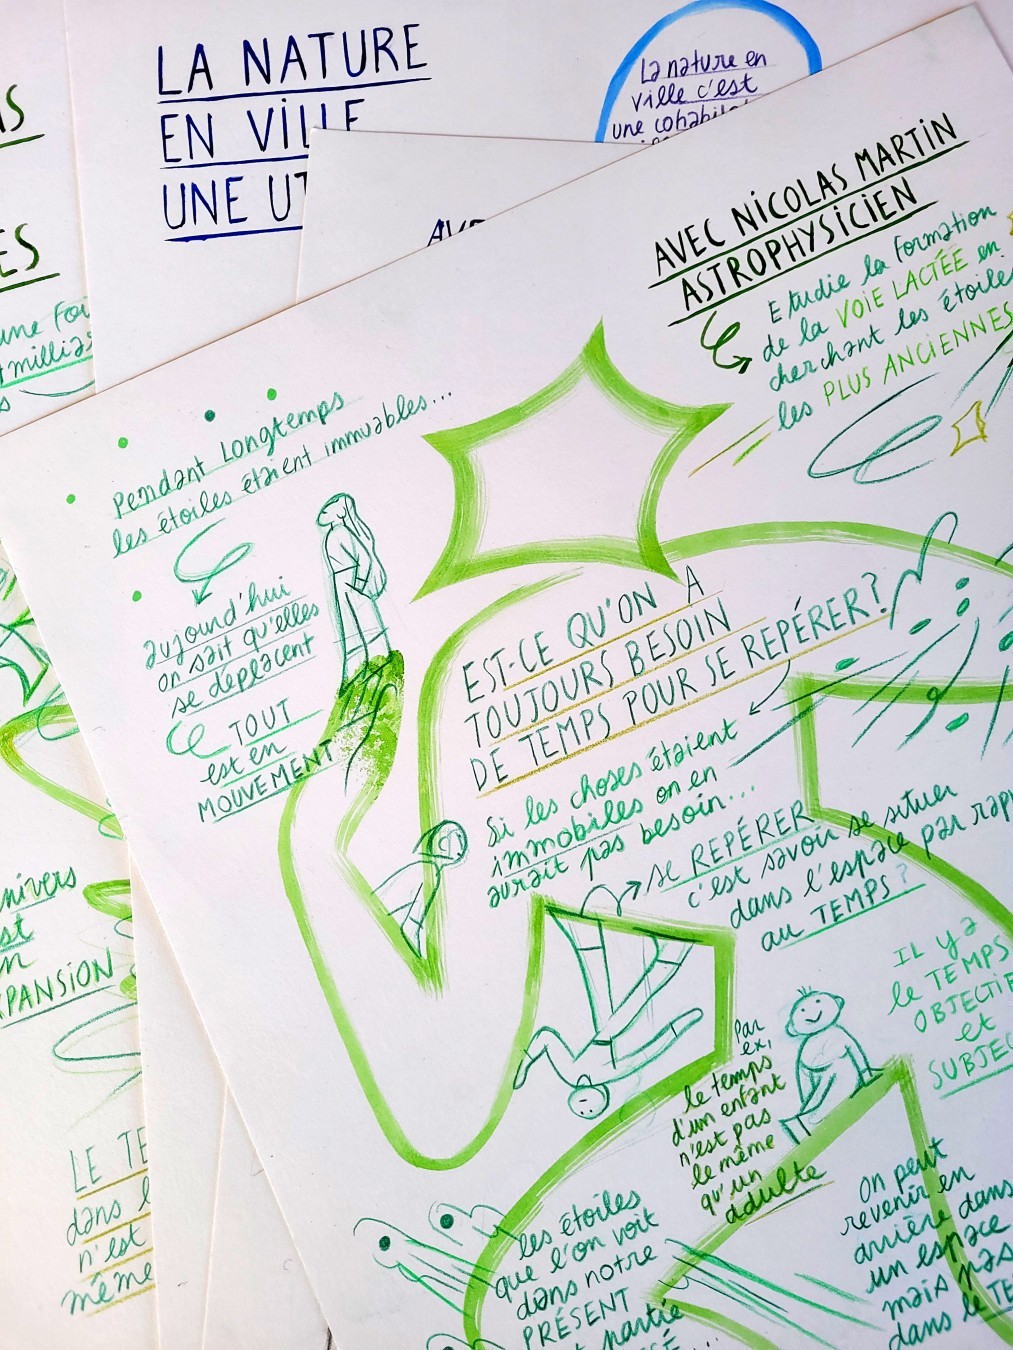 LA NATURE
EN VILLE
UNE UT
La nature en
ville c'est
une cohabi
AVEC NICOLAS MARTIN
ASTROPHYSICIEN
Etudie la formation
de la VOIE LACTÉE en
cherchant les étoiles
les PLUS ANCIENNES
Pendant Longtemps
les étoiles étaient immuables...
aujourd'hui
on sait qu'elles
se déplacent
TOUT
est en
MOUVEMENT
EST-CE QU'ON A
TOUJOURS BESOIN
DE TEMPS POUR SE REPÉRER?
Si les choses étaient
immobiles on en
aurait pas besoin...
se REPÉRER
c'est savoir se situer
dans l'espace par rap
au TEMPS?
IL y a
le TEMPS
OBJECTIF
et
SUBJEC
Par
ex,
le temps
d'un enfant
n'est pas
le même
qu'un
adulte
On peut
revenir en
arrière dans
un espace
mais pas
dans le TE
les étoiles
que l'on voit
dans notre
PRÉSENT
partie
S
ES
une
milliar
nivers
st
n
PANSION
LE TE
dans l
n'est
même